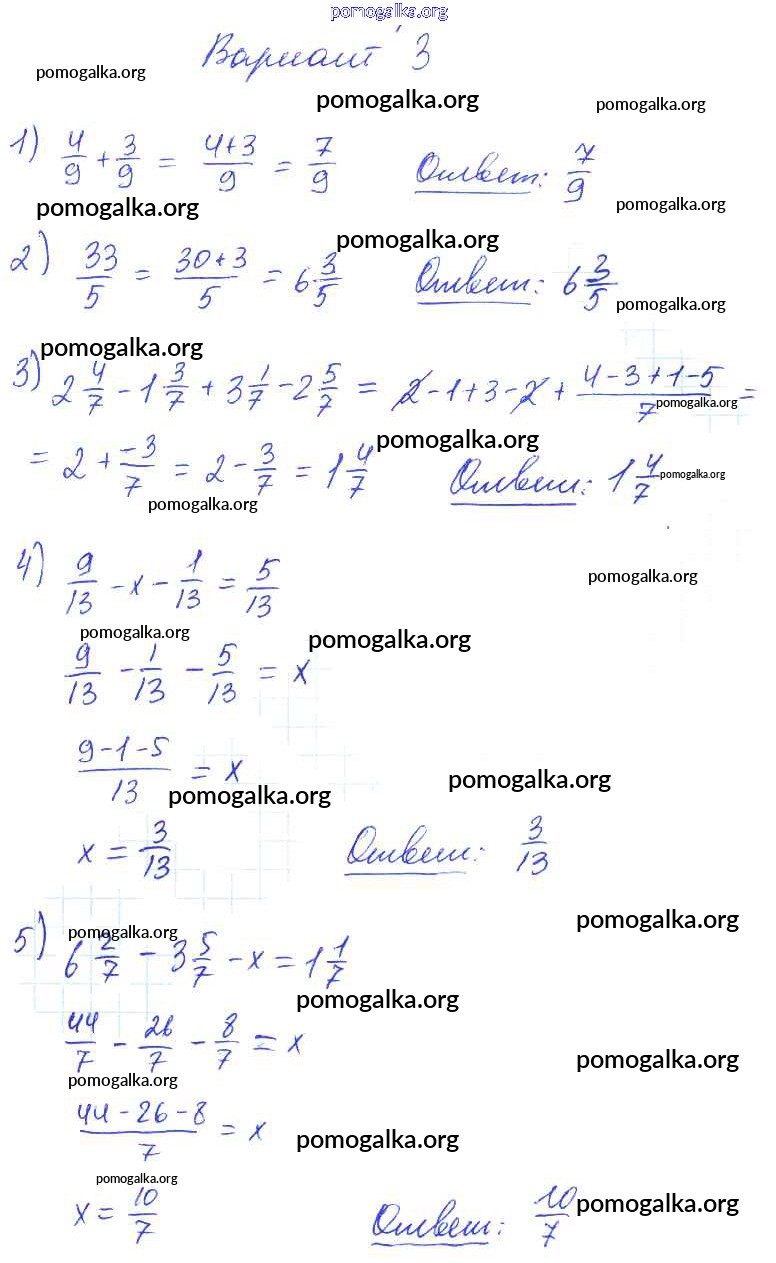 pomogalka.org
Вариант 3
pomogalka.org
pomogalka.org pomogalka.org
1) 4/9 + 3/9 = (4+3)/9 = 7/9 Ответ: 7/9
pomogalka.org pomogalka.org
pomogalka.org
2) 33/5 = (30+3)/5 = 6 3/5 Ответ: 6 3/5
pomogalka.org
pomogalka.org
3) 2 4/7 - 1 3/7 + 3 1/7 - 2 5/7 = 2 - 1 + 3 - 2 + (4-3+1-5)/7 =
pomogalka.org
pomogalka.org
= 2 + -3/7 = 2 - 3/7 = 1 4/7 Ответ: 1 4/7
pomogalka.org
pomogalka.org
4) 9/13 - x - 1/13 = 5/13
pomogalka.org
pomogalka.org pomogalka.org
9/13 - 1/13 - 5/13 = x
(9-1-5)/13 = x
pomogalka.org pomogalka.org
x = 3/13 Ответ: 3/13
pomogalka.org
pomogalka.org
5) 6 2/7 - 3 5/7 - x = 1 1/7
pomogalka.org
44/7 - 26/7 - 8/7 = x
pomogalka.org
pomogalka.org
(44-26-8)/7 = x
pomogalka.org
pomogalka.org
x = 10/7 Ответ: 10/7
pomogalka.org